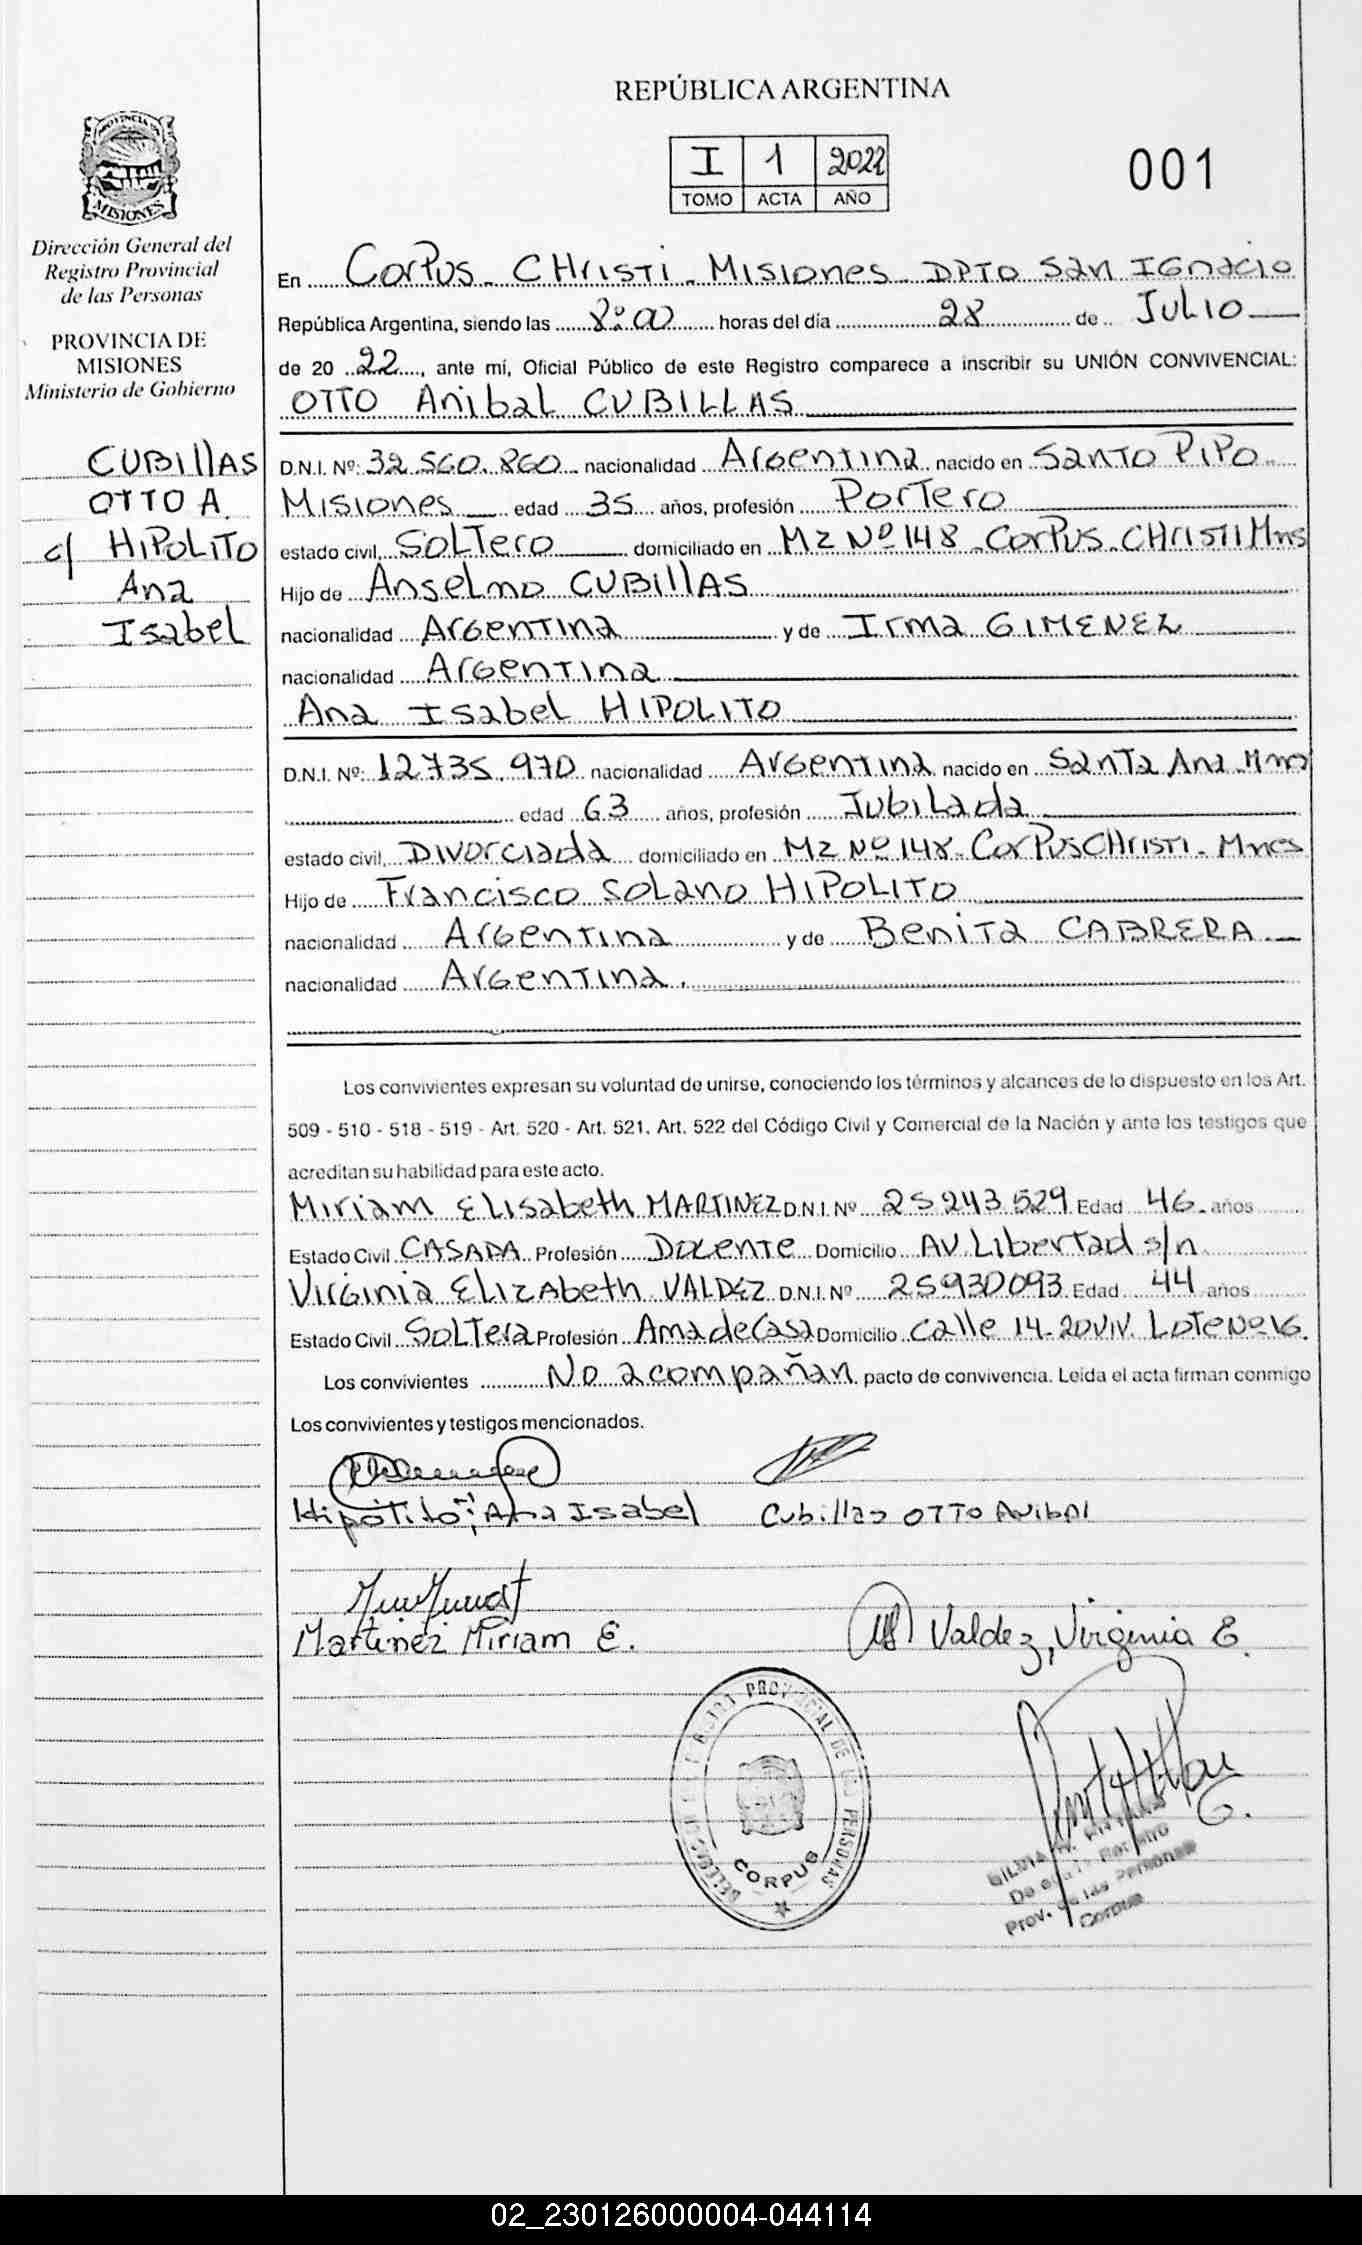 REPÚBLICA ARGENTINA
I 1 2022
TOMO ACTA AÑO
001
PROVINCIA DE
MISIONES
Dirección General del
Registro Provincial
de las Personas
PROVINCIA DE
MISIONES
Ministerio de Gobierno
CUBIllAS
OTTO A.
c/ HiPoLiTO
Ana
Isabel
En CorPus - CHristi - Misiones - DPTO San IGnacio
República Argentina, siendo las 8:00 horas del día 28 de Julio
de 20 22, ante mí, Oficial Público de este Registro comparece a inscribir su UNIÓN CONVIVENCIAL:
OTTO Anibal CUBILLAS
D.N.I. Nº: 32.560.860 nacionalidad Argentina nacido en Santo Pipo
Misiones edad 35 años, profesión Portero
estado civil, Soltero domiciliado en Mz Nº 148 - Corpus - CHristi Mns
Hijo de Anselmo CUBIllAS
nacionalidad Argentina y de Irma GIMENEZ
nacionalidad Argentina
Ana Isabel HIPOLITO
D.N.I. Nº: 12735.970 nacionalidad Argentina nacido en Santa Ana Mnes
edad 63 años, profesión Jubilada
estado civil, Divorciada domiciliado en Mz Nº 148 - Corpus CHristi - Mnes
Hijo de Francisco Solano HIPOLITO
nacionalidad Argentina y de Benita CABRERA
nacionalidad Argentina.
Los convivientes expresan su voluntad de unirse, conociendo los términos y alcances de lo dispuesto en los Art.
509 - 510 - 518 - 519 - Art. 520 - Art. 521, Art. 522 del Código Civil y Comercial de la Nación y ante los testigos que
acreditan su habilidad para este acto.
Miriam Elisabeth MARTINEZ D.N.I. Nº 25243529 Edad 46 años
Estado Civil CASADA Profesión Docente Domicilio AV Libertad s/n
Virginia Elizabeth VALDEZ D.N.I. Nº 25930093 Edad 44 años
Estado Civil Soltera Profesión Ama de Casa Domicilio Calle 14-20 VIV. Lote Nº 16.
Los convivientes No acompañan pacto de convivencia. Leída el acta firman conmigo
Los convivientes y testigos mencionados.
Hipólito, Ana Isabel Cubillas OTTO Anibal
Martinez Miriam E. Valdez, Virginia E.
PROVINCIAL DE LAS PERSONAS
CORPUS
Prov. de las Personas
Corpus
02_230126000004-044114